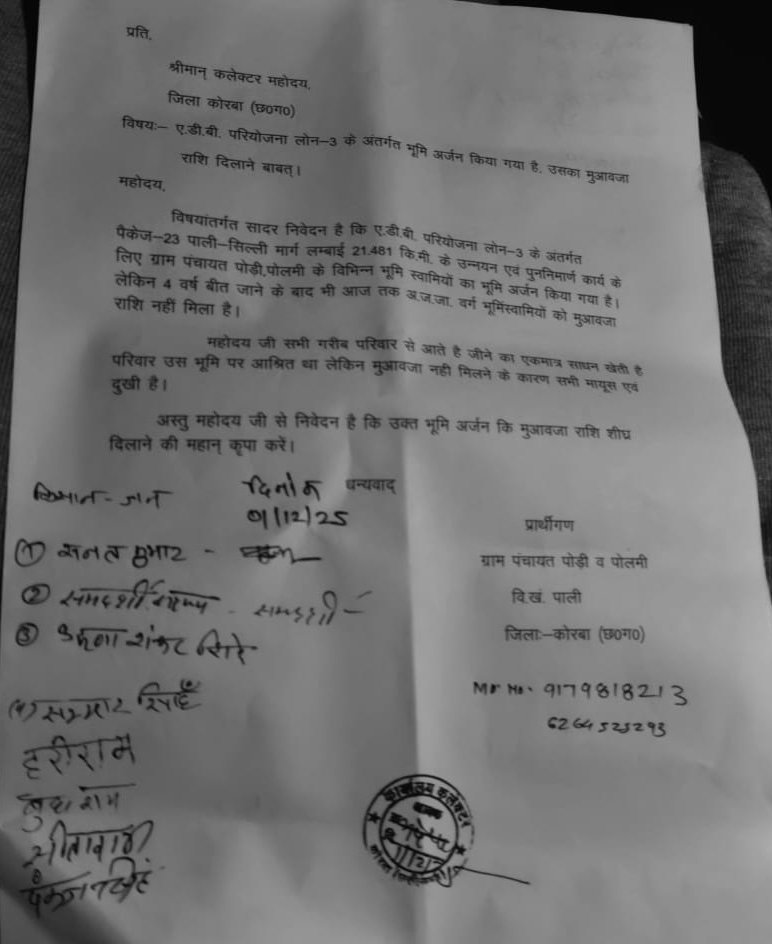 प्रति,
श्रीमान् कलेक्टर महोदय,
जिला कोरबा (छ0ग0)
विषयः– ए.डी.बी. परियोजना लोन–3 के अंतर्गत भूमि अर्जन किया गया है, उसका मुआवजा
राशि दिलाने बाबत्।
महोदय,
विषयांतर्गत सादर निवेदन है कि ए.डी.बी. परियोजना लोन–3 के अंतर्गत
पैकेज–23 पाली–सिल्ली मार्ग लम्बाई 21.481 कि.मी. के उन्नयन एवं पुननिर्माण कार्य के
लिए ग्राम पंचायत पोड़ी,पोलमी के विभिन्न भूमि स्वामियों का भूमि अर्जन किया गया है।
लेकिन 4 वर्ष बीत जाने के बाद भी आज तक अ.ज.जा. वर्ग भूमिस्वामियों को मुआवजा
राशि नहीं मिला है।
महोदय जी सभी गरीब परिवार से आते है जीने का एकमात्र साधन खेती है
परिवार उस भूमि पर आश्रित था लेकिन मुआवजा नही मिलने के कारण सभी मायूस एवं
दुखी है।
अस्तु महोदय जी से निवेदन है कि उक्त भूमि अर्जन कि मुआवजा राशि शीघ्र
दिलाने की महान् कृपा करें।
दिनांक धन्यवाद
01/12/25
किसान-
प्रार्थीगण
① सनत कुमार -
ग्राम पंचायत पोड़ी व पोलमी
② समदर्शी - समदर्शी
वि.खं. पाली
③ शंकर
जिलाः–कोरबा (छ0ग0)
(४) सम्मार सिंह
9179818213
6264525293
हरीराम
बुधराम
कार्यालय कलेक्टर